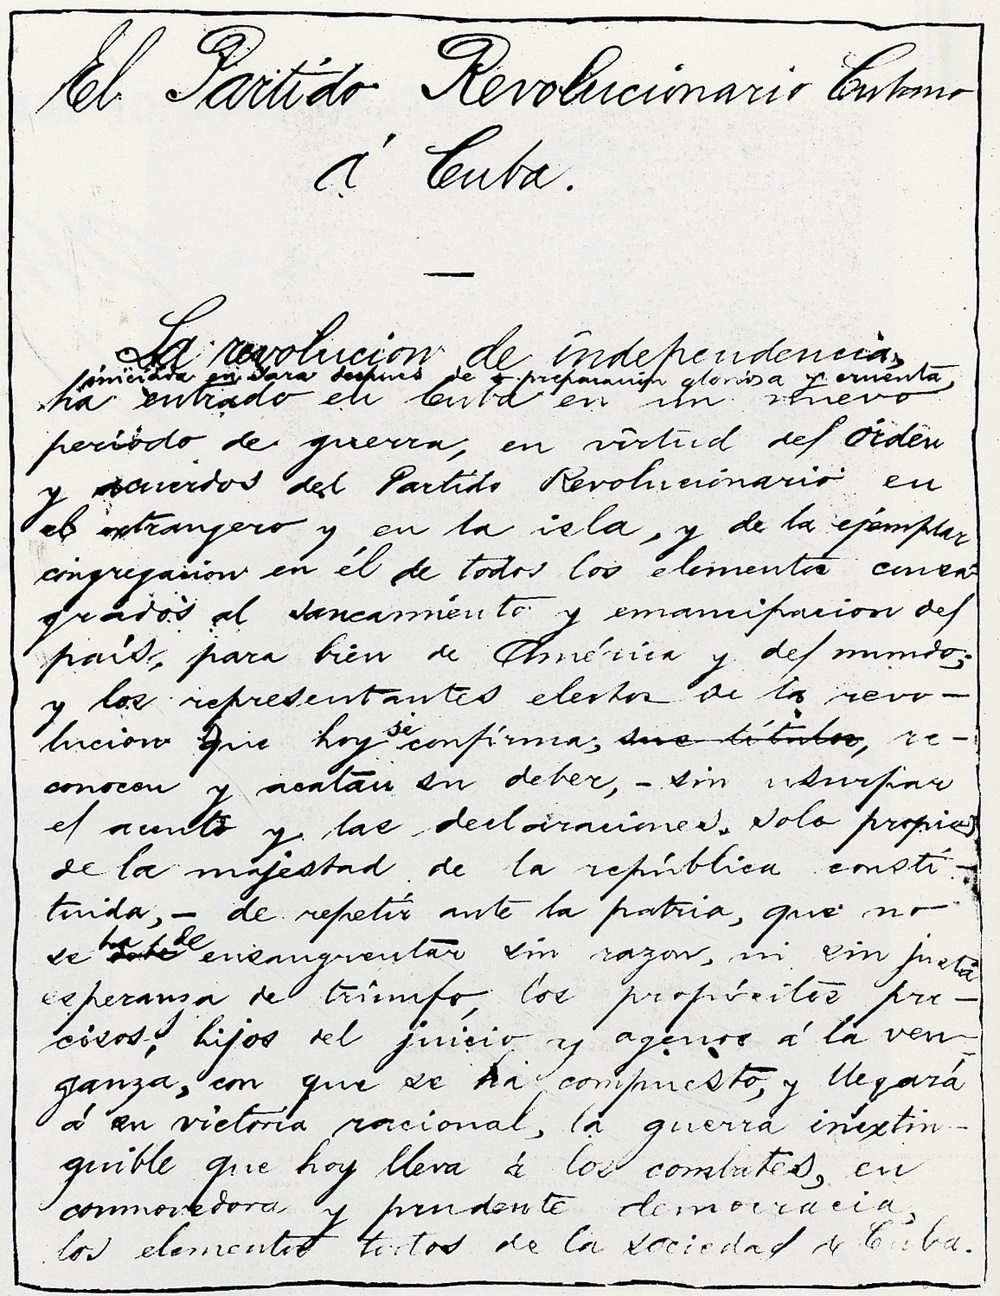 El Partido Revolucionario Cubano
á Cuba.
La revolucion de independencia,
iniciada en Yara despues de preparacion gloriosa y cruenta,
ha entrado en Cuba en un nuevo
período de guerra, en virtud del órden
y acuerdos del Partido Revolucionario en
el extrangero y en la isla, y de la ejemplar
congregacion en él de todos los elementos consa-
grados al saneamiento y emancipacion del
país, para bien de América y del mundo;
y los representantes electos de la revo-
lucion que hoy se confirma, sus títulos, re-
conocen y acatan su deber, - sin usurpar
el acento y las declaraciones solo propias
de la majestad de la república consti-
tuida, - de repetir ante la patria, que no
se ha de ensangrentar sin razon, ni sin justa
esperanza de triunfo, los propósitos pre-
cisos, hijos del juicio y agenos á la ven-
ganza, con que se ha compuesto, y llegará
á su victoria racional, la guerra inextin-
guible que hoy lleva á los combates, en
conmovedora y prudente democracia,
los elementos todos de la sociedad de Cuba.